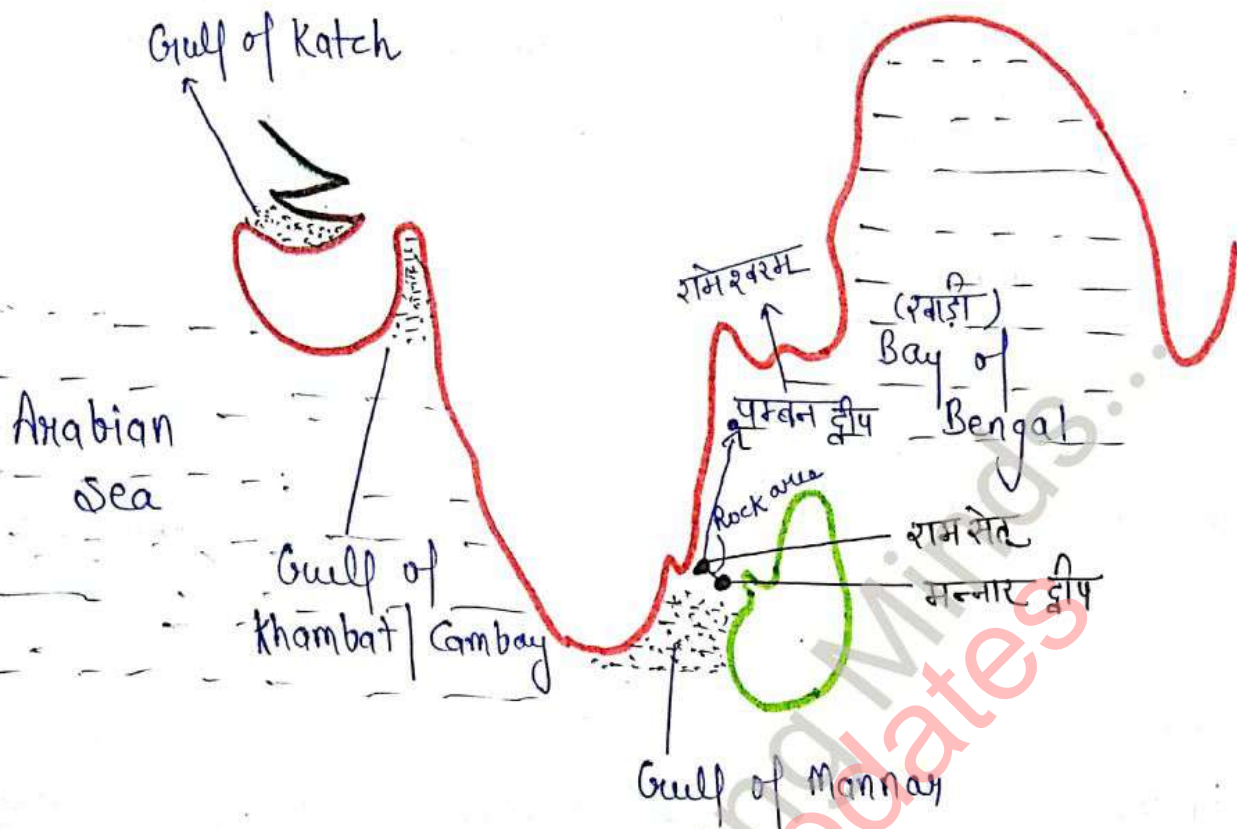 Gulf of Katch
रामेश्वरम
(खाड़ी)
Bay of
Bengal
पम्बन द्वीप
Arabian
Sea
Rock area
राम सेतु
मन्नार द्वीप
Gulf of
Khambat / Cambay
Gulf of Mannar
ng Minds...
dates